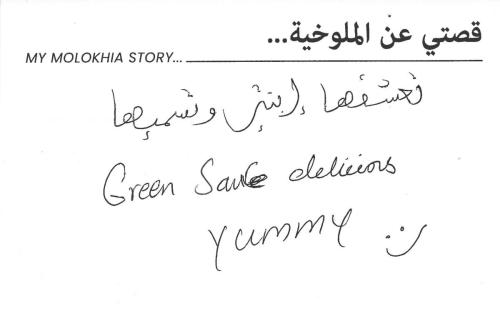 قصتي عن الملوخية...
MY MOLOKHIA STORY...
تعشقها إبنتي وتسميها
Green Sauce delicious
YUMMY :)